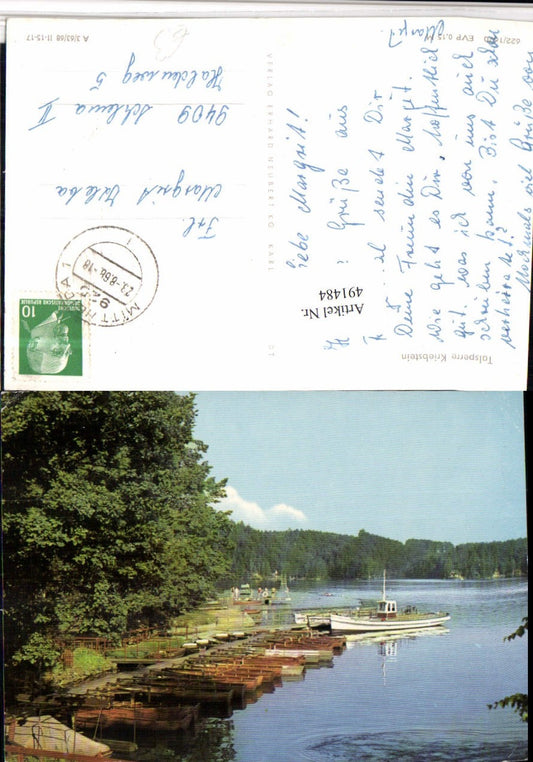 Liebe Margrit!
Grüße aus
sendet Dir
Deine Freundin Margit.
Wie geht es Dir, hoffentlich
gut, was ich von uns auch
schreiben kann. Bist Du schon
verheiratet?
Nochmals viel Grüße von
Margit.
Talsperre Kriebstein
622/
EVP 0,15 M
Artikel Nr.
491484
VERLAG ERHARD NEUBERT KG KARL
DT
A 3/63/68 II-15-17
MITTWEIDA 1
-8.68.-18
10
DEUTSCHE DEMOKRATISCHE REPUBLIK
Frl.
Margrit
9409 Schlema II
Haldenweg 5